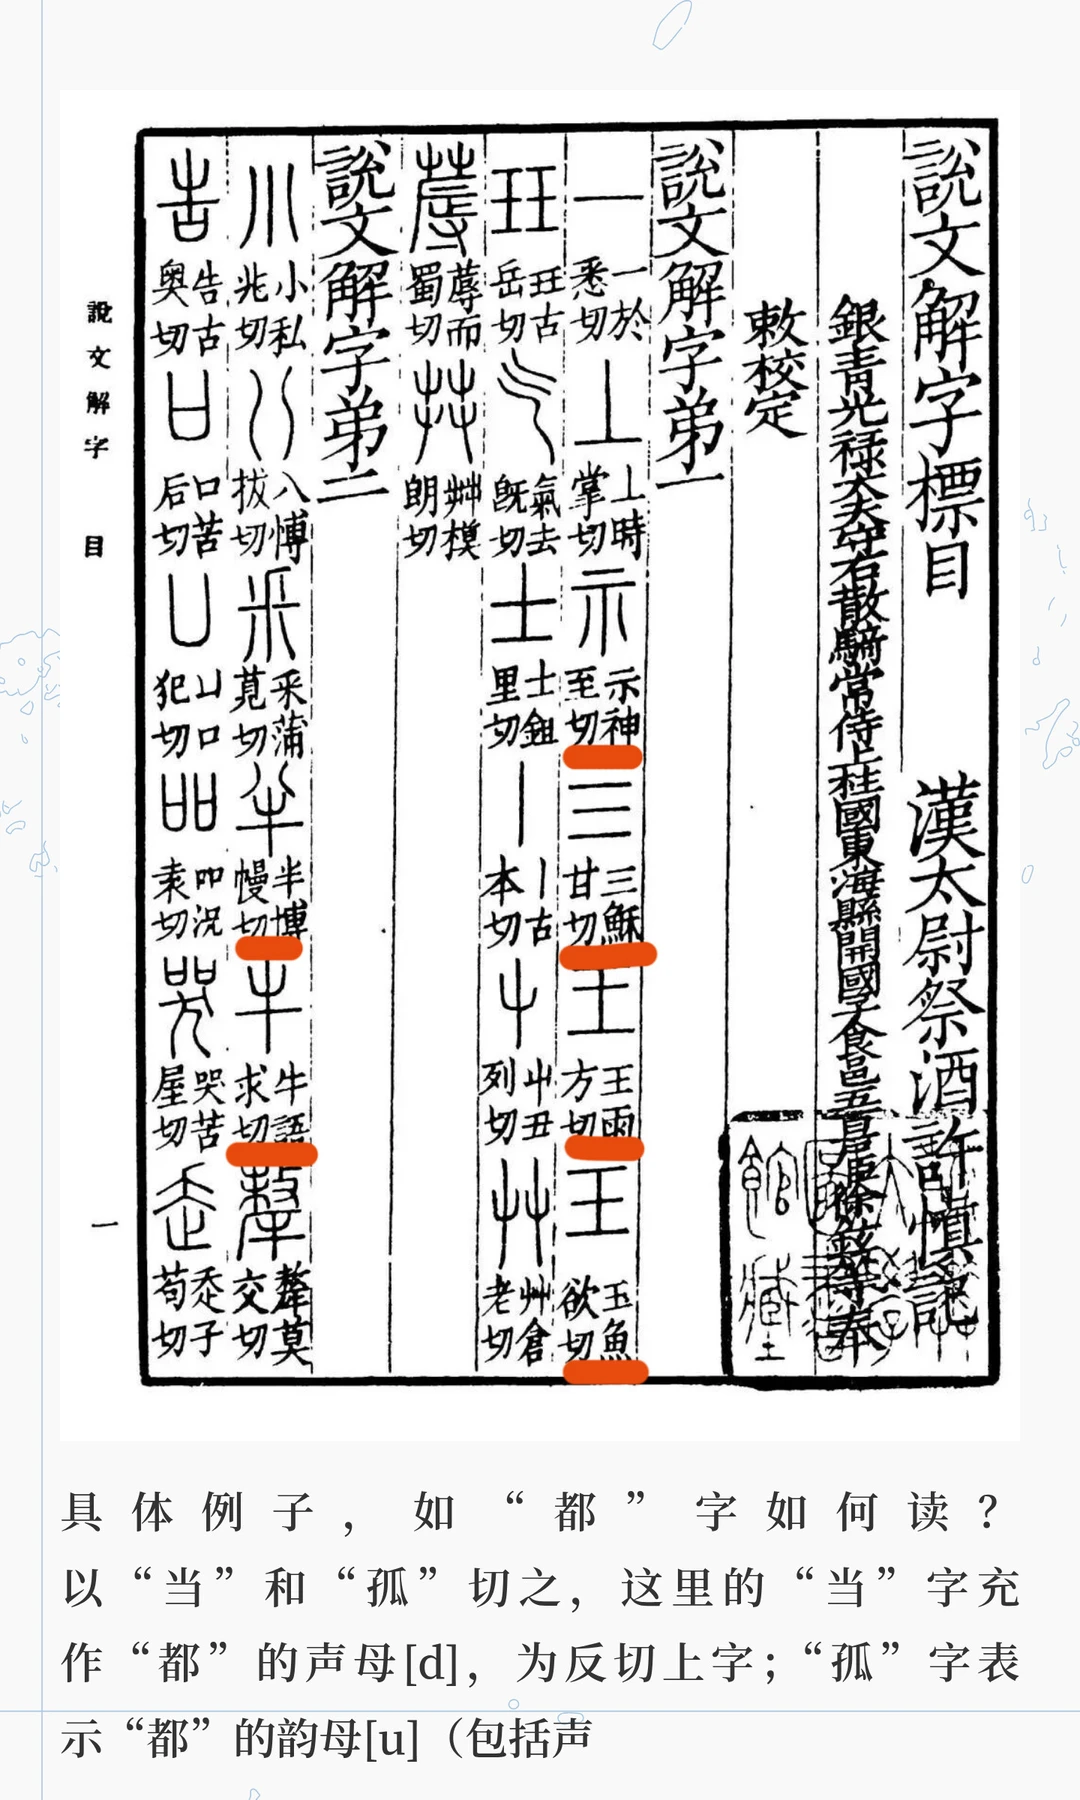 說文解字標目 漢太尉祭酒許慎記
銀青光祿大夫守右散騎常侍上柱國東海縣開國子食邑五百戶臣徐鉉等奉
敕校定
說文解字弟一
一於悉切 丄時掌切 示神至切 三穌甘切 王雨方切 玉魚欲切
玨古岳切 氣去既切 士鉏里切 丨古本切 屮丑列切 艸倉老切
蓐而蜀切 茻模朗切
說文解字弟二
小私兆切 八博拔切 釆蒲莧切 半博幔切 牛語求切 犛莫交切
告古奧切 口苦后切 凵口犯切 吅況袁切 哭苦屋切 走子苟切
說文解字 目
一
具体例子，如“都”字如何读？
以“当”和“孤”切之，这里的“当”字充
作“都”的声母[d]，为反切上字；“孤”字表
示“都”的韵母[u]（包括声